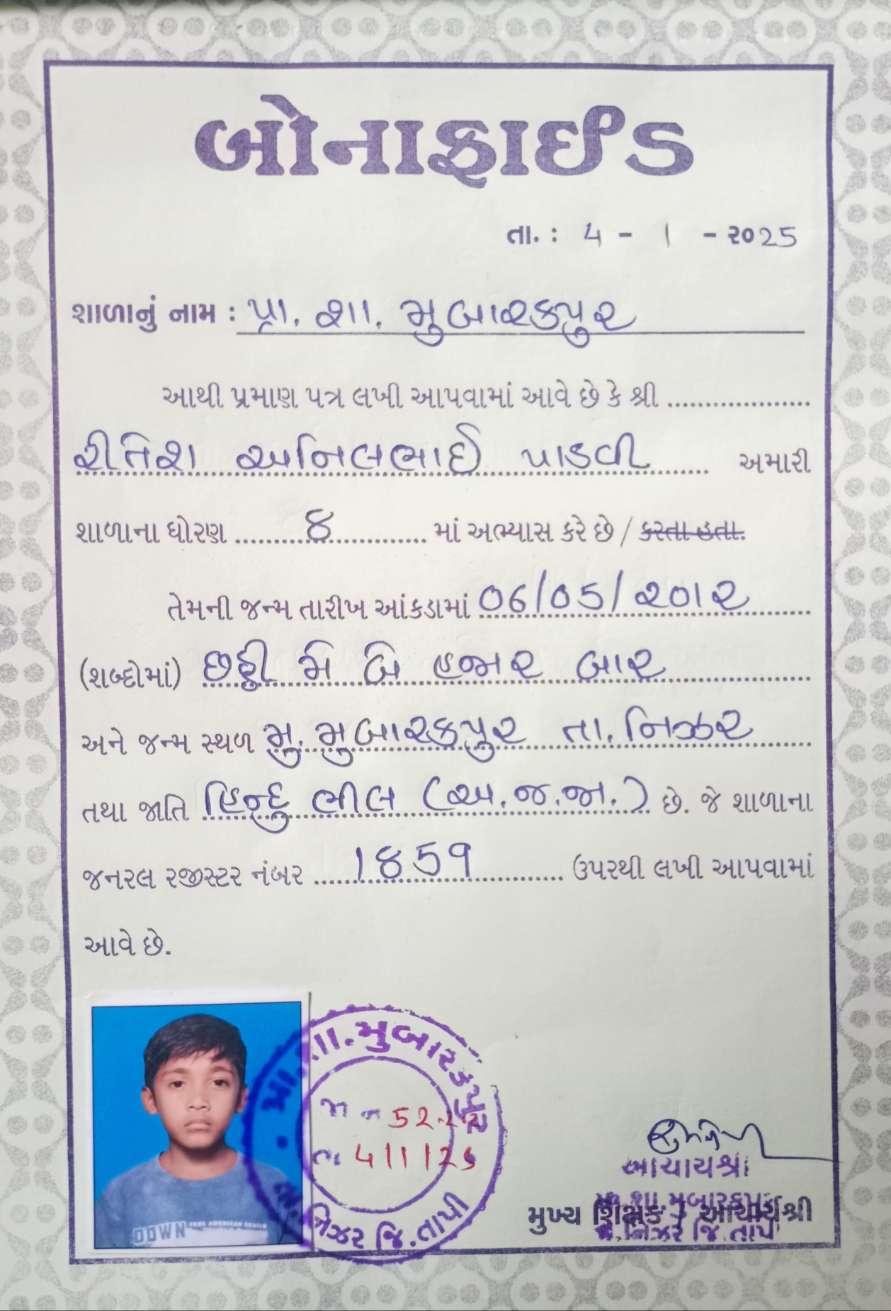 બોનાફાઈડ
તા. : 4 - 1 - ૨૦25
શાળાનું નામ : પ્રા. શા. મુબારકપુર
આથી પ્રમાણ પત્ર લખી આપવામાં આવે છે કે શ્રી ..................
રીતેશ અનિલભાઈ પાડવી અમારી
શાળાના ધોરણ ........8............ માં અભ્યાસ કરે છે / કરતા હતા.
તેમની જન્મ તારીખ આંકડામાં 06/05/૨૦1૨
(શબ્દોમાં) છઠ્ઠી મે બે હજાર બાર
અને જન્મ સ્થળ મુ. મુબારકપુર તા. નિઝર
તથા જાતિ હિન્દુ ભીલ (અ.જ.જા.) છે. જે શાળાના
જનરલ રજીસ્ટર નંબર ....1859............ ઉપરથી લખી આપવામાં
આવે છે.
પ્રા.શા.મુબારકપુર
જા ન 52
તા. 4/1/25
તા.નિઝર જિ.તાપી
DOWN
આચાર્યશ્રી
પ્રા.શા.મુબારકપુર
તા.નિઝર જિ.તાપી
મુખ્ય શિક્ષક / આચાર્યશ્રી